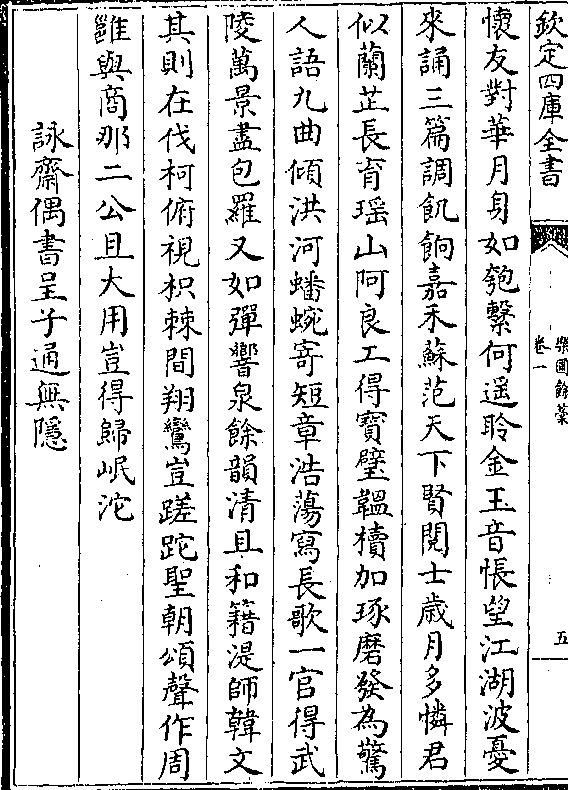 欽定四庫全書
樂圃餘藁
卷一
五
懷友對華月身如匏繫何遥聆金玉音悵望江湖波憂
來誦三篇調飢餉嘉禾蘇范天下賢閱士歳月多憐君
似蘭芷長育瑶山阿良工得寳璧韞櫝加琢磨發為驚
人語九曲傾洪河蟠蜿寄短章浩蕩寫長歌一官得武
陵萬景盡包羅又如彈響泉餘韻清且和籍湜師韓文
其則在伐柯俯視枳棘間翔鸞豈蹉跎聖朝頌聲作周
雖與商那二公且大用豈得歸岷沱
詠齋偶書呈子通無隱